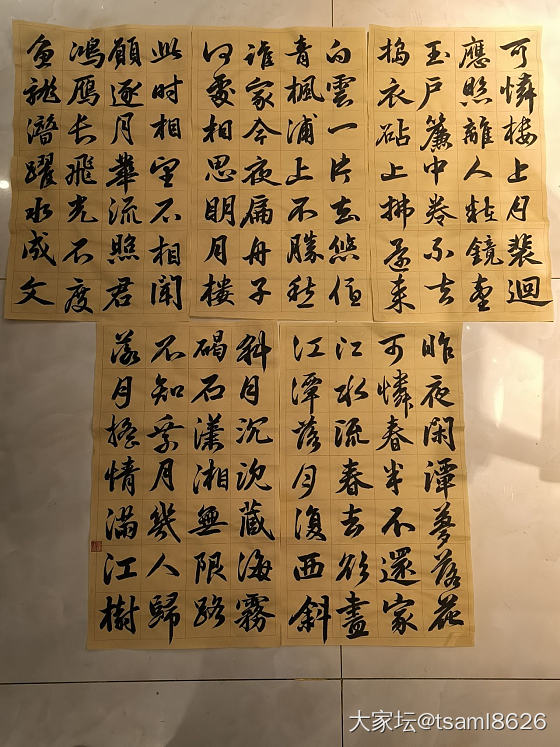 可憐楼上月裴迴
應照離人粧鏡臺
玉戶簾中卷不去
搗衣砧上拂還来
白雲一片去悠悠
青楓浦上不勝愁
誰家今夜扁舟子
何處相思明月樓
此时相望不相聞
願逐月華流照君
鴻雁长飛光不度
魚龍潛躍水成文
昨夜閑潭夢落花
可憐春半不還家
江水流春去欲盡
江潭落月復西斜
斜月沉沉藏海霧
碣石瀟湘無限路
不知乘月幾人歸
落月搖情滿江樹
大家坛@tsaml8626